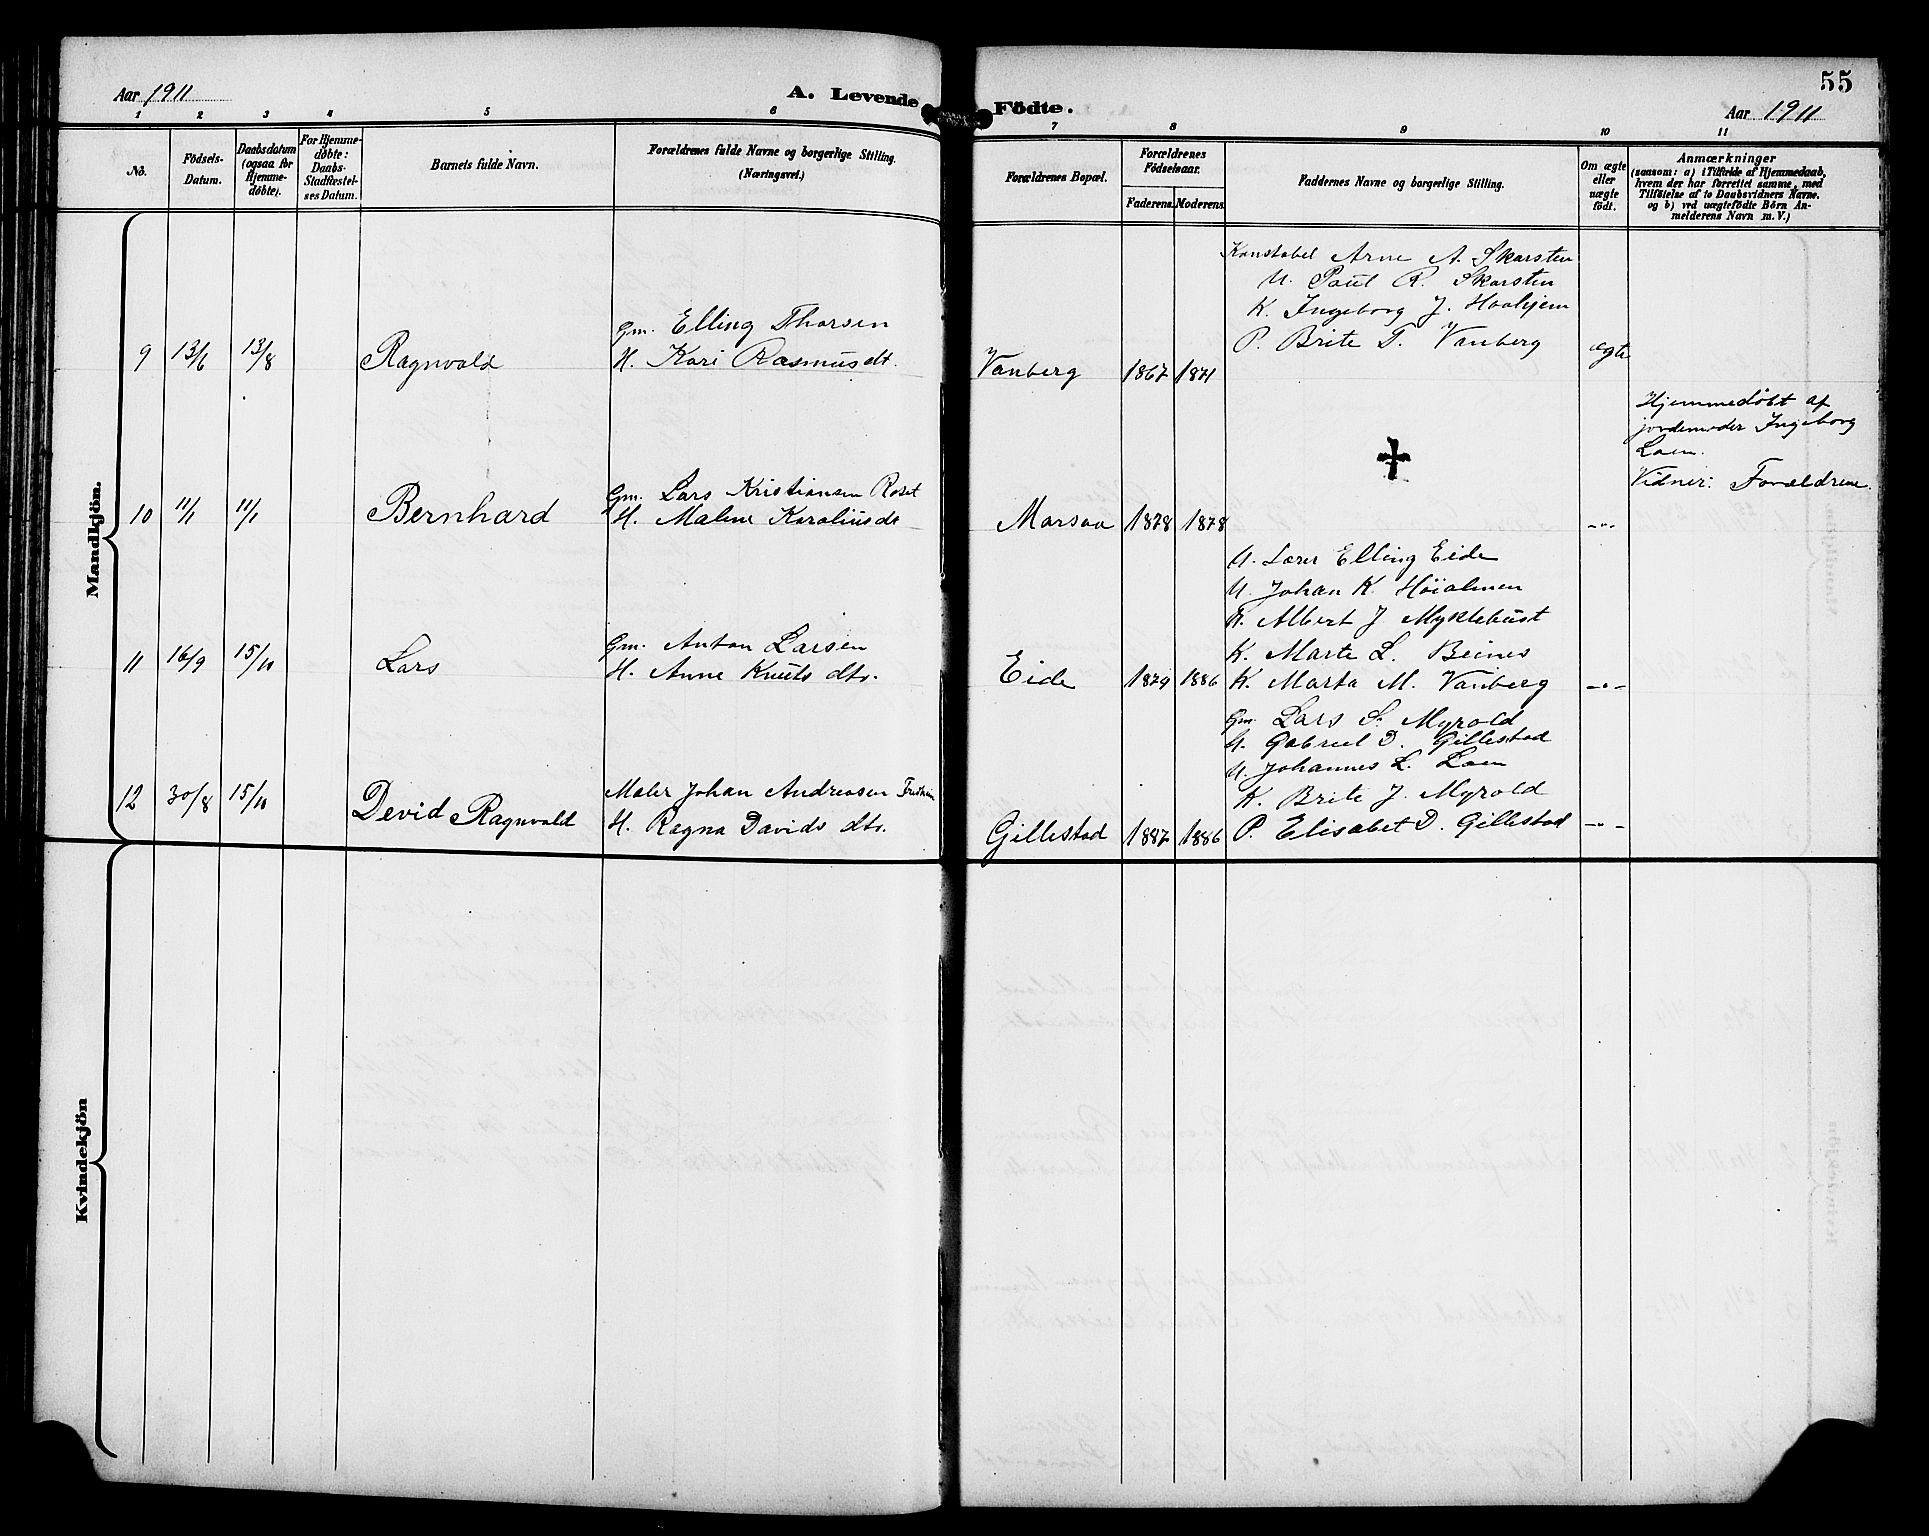 Aar 1911
A. Levende
1 2 3 4 5 6
No.
Födsels-
Datum.
Daabsdatum
(ogsaa for
Hjemme-
döbte).
For Hjemme-
döbte:
Daabs-
Stadfæstel-
ses Datum.
Barnets fulde Navn.
Forældrenes fulde Navne og borgerlige Stilling.
(Næringsvei.)
Mandkjön.
Gm. Elling Thorsen
9 13/6 13/8 Ragnvald H. Kari Rasmusdt.
Gm. Lars Kristiansen Roset
10 11/1 11/1 Bernhard H. Malene Karoliusdt
Gm. Anton Larsen
11 16/9 15/10 Lars H. Anne Knuts dtr.
Maler Johan Andreasen
12 30/8 15/10 Devid Ragnvald H. Ragna Davids dtr.
Kvindekjön
55
Födte.
Aar 1911
7 8 9 10 11
Forældrenes Bopæl.
Forældrenes
Födselsaar.
Faderens. Moderens.
Faddernes Navne og borgerlige Stilling.
Om ægte
eller
uægte
födt.
Anmærkninger
(saasom: a) i Tilfælde af Hjemmedaab,
hvem der har forrettet samme, med
Tilföielse af to Daabsvidners Navne.
og b) ved uægtefödte Börn An-
melderens Navn m. V.)
Konstabel Arne A. Skarsten
U. Paul R. Skarsten
K. Ingeborg J. Haahjem
P. Brite T. Vanberg
Vanberg 1867 1871 ægte
Hjemmedöbt af
jordemoder Ingeborg
Loen.
Vidner: Forældrene.
Marsaa 1878 1878 -"-
U. Lærer Elling Eide
U. Johan K. Höialmen
U. Albert J Myklebust
K. Marte L. Beines
Eide 1879 1886 K. Marta M. Vanberg -"-
Gm. Lars S. Myrold
U. Gabriel D. Gillestad
U. Johannes L. Loen
K. Brite J. Myrold
Gillestad 1887 1886 P. Elisabet D. Gillestad -"-